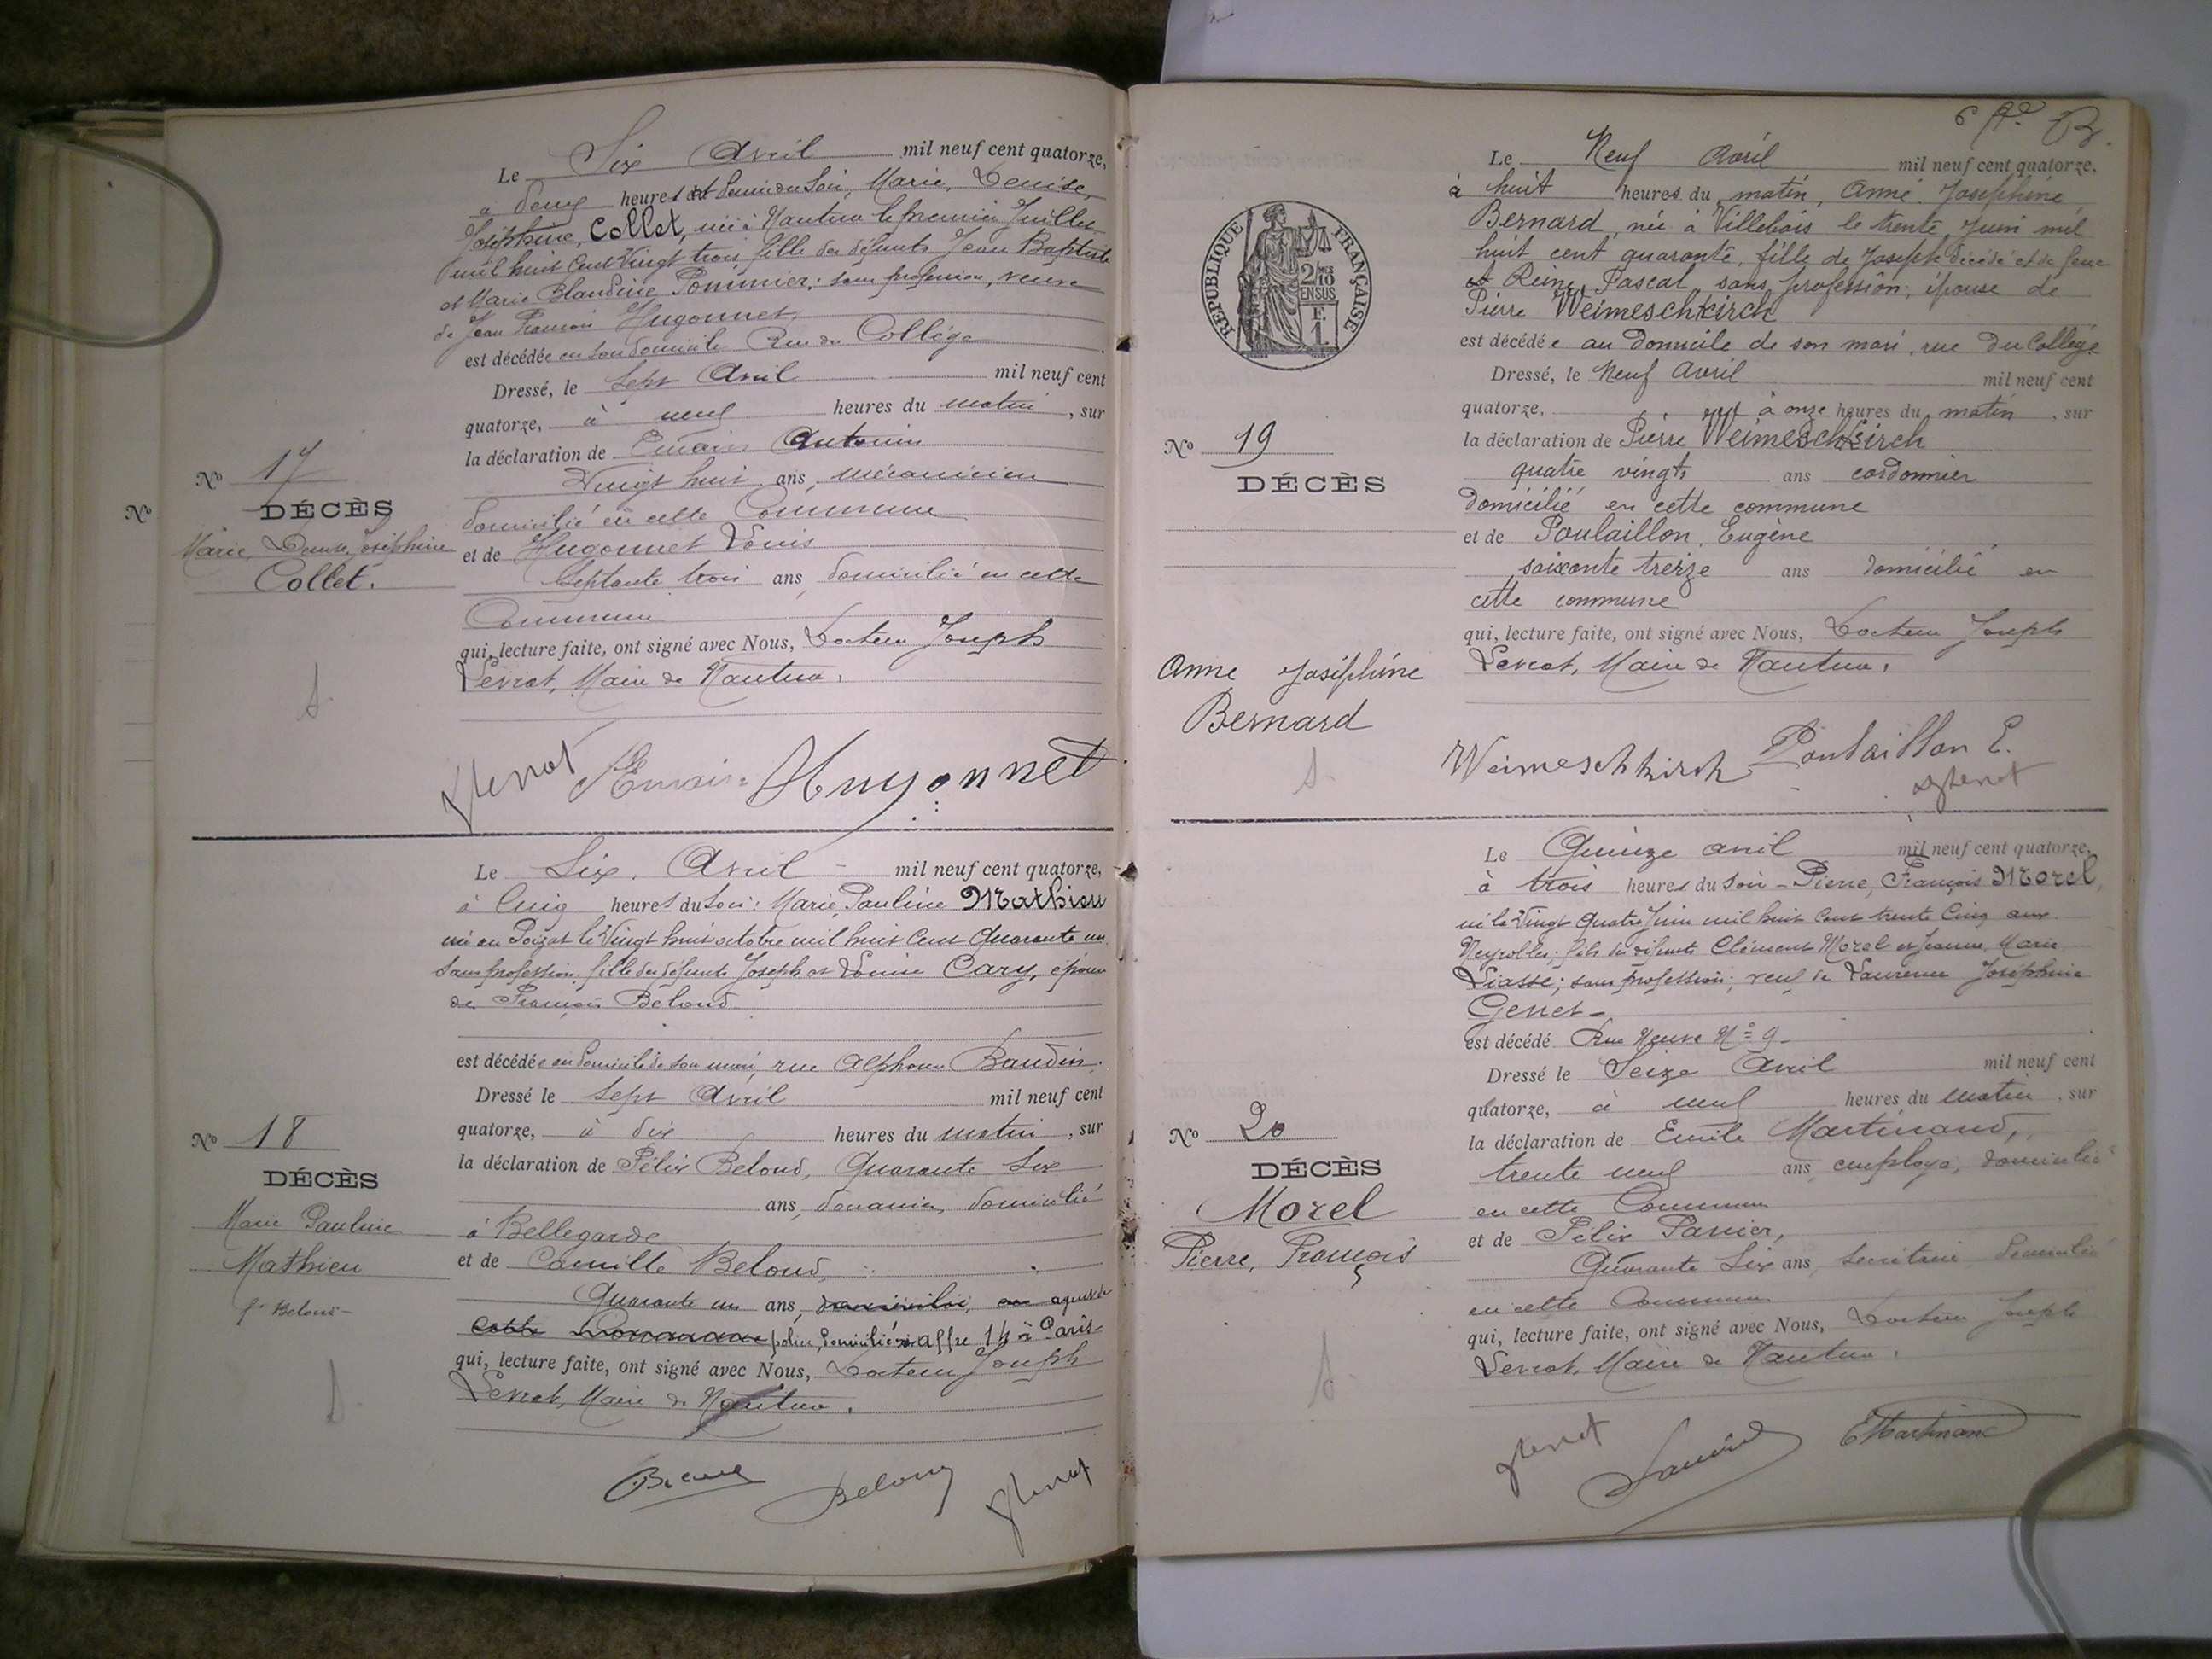 Le Six Avril mil neuf cent quatorze,
à deux heures et demie du Soir, Marie, Denise,
Joséphine, Collet, née à Nantua le premier Juillet
mil huit cent vingt trois, fille des défunts Jean Baptiste
et Marie Blandine Pommier; sans profession, veuve
de Jean François Hugonnet,
est décédée en son domicile Rue du Collège
Dressé, le Sept Avril mil neuf cent
quatorze, à neuf heures du matin, sur
la déclaration de Emain Antonin
Vingt huit ans, mécanicien
domicilié en cette Commune
et de Hugonnet Louis
Septante trois ans, domicilié en cette
Commune
qui, lecture faite, ont signé avec Nous, Docteur Joseph
Levrat, Maire de Nantua.
Nº 17
DÉCÈS
Marie Denise Joséphine
Collet.
Nº
Hugonnet
Le Six Avril mil neuf cent quatorze,
à Cinq heures du Soir: Marie, Pauline Mathieu
née au Poizat le Vingt huit octobre mil huit cent Quarante un
sans profession, fille des défunts Joseph et Louise Cary, épouse
de François Beloud
est décédée au domicile de son mari, rue Alphonse Baudin.
Dressé le Sept Avril mil neuf cent
quatorze, à dix heures du matin, sur
la déclaration de Félix Beloud, Quarante Six
ans, douanier, domicilié
à Bellegarde
et de Camille Beloud,
Quarante un ans, domicilié, en agent de
cette Commune police, domicilié r. affre 14 à Paris
qui, lecture faite, ont signé avec Nous, Docteur Joseph
Levrat, Maire de Nantua.
Nº 18
DÉCÈS
Marie Pauline
Mathieu
fe Beloud
Beloud
6
RÉPUBLIQUE FRANÇAISE
2/10 EN SUS
F. 1.
Le Neuf Avril mil neuf cent quatorze,
à huit heures du matin, Anne Joséphine
Bernard, née à Villebois le trente Juin mil
huit cent quarante, fille de Joseph décédé et de feue
et Reine Pascal, sans profession, épouse de
Pierre Weimeschkirch
est décédée au domicile de son mari, rue du Collège
Dressé, le Neuf Avril mil neuf cent
quatorze, à onze heures du matin, sur
la déclaration de Pierre Weimeschkirch
quatre vingts ans cordonnier
domicilié en cette commune
et de Poulaillon, Eugène
soixante treize ans domicilié en
cette commune
qui, lecture faite, ont signé avec Nous, Docteur Joseph
Levrat, Maire de Nantua.
Nº 19
DÉCÈS
Anne Joséphine
Bernard
Weimeschkirch Poulaillon E.
Le Quinze avril mil neuf cent quatorze,
à trois heures du Soir - Pierre, François Morel,
né le Vingt Quatre Juin mil huit cent trente Cinq aux
Neyrolles; fils des défunts Clément Morel et Jeanne Marie
Liasse; sans profession; veuf de Laurence Joséphine
Genet -
est décédé Rue Neuve Nº 9 -
Dressé le Seize Avril mil neuf cent
quatorze, à neuf heures du matin, sur
la déclaration de Emile Martinand,
trente neuf ans, employé, domicilié
en cette Commune
et de Félix Panier,
Quarante Six ans, Secrétaire, domicilié
en cette Commune
qui, lecture faite, ont signé avec Nous, Docteur Joseph
Levrat, Maire de Nantua.
Nº 20
DÉCÈS
Morel
Pierre, François
EMartinand